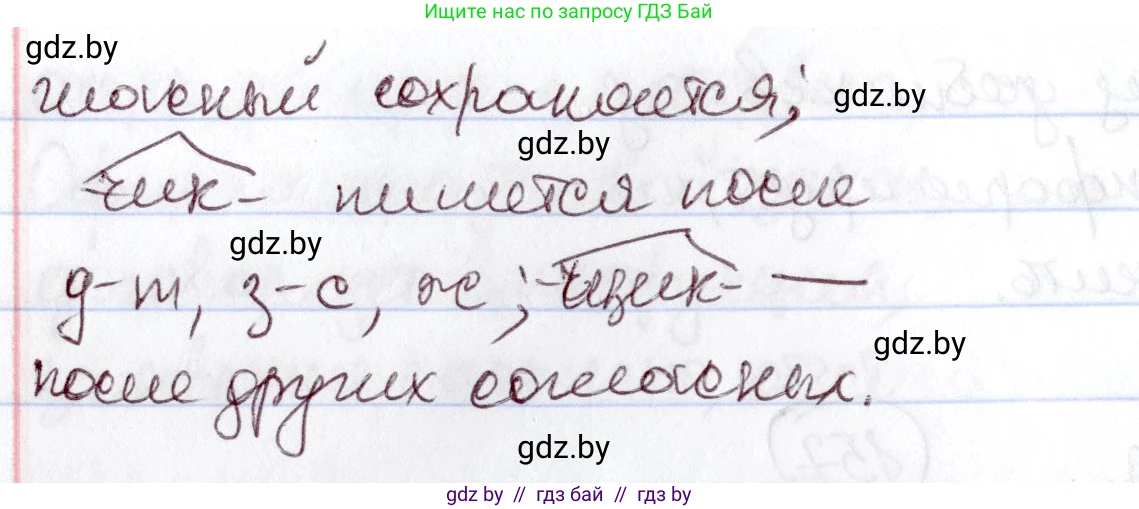 Ищите нас по запросу ГДЗ Бай
gdz.by
гласный сохраняется; gdz.by
gdz.by
-чик- пишется после
gdz.by
д-т, з-с, ж; -щик- —
gdz.by
после других согласных.
gdz.by
gdz.by // гдз бай // гдз by